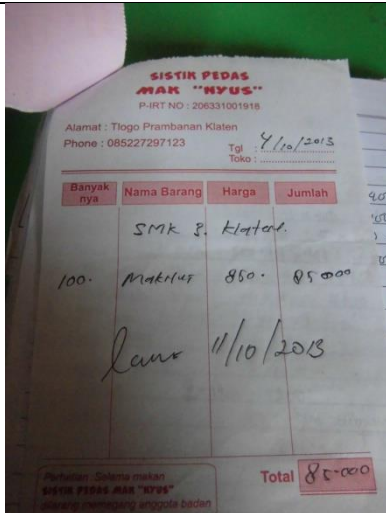 SISTIK PEDAS
MAK "NYUS"
P-IRT NO : 206331001918
Alamat : Tlogo Prambanan Klaten
Phone : 085227297123
Tgl : 4/10/2013
Toko :
Banyak nya Nama Barang Harga Jumlah
SMK 3. Klaten.
100. Maknyus 850. 85000
11/10/2013
Total 85.000
Perhatian :Selama makan
SISTIK PEDAS MAK "NYUS"
dilarang memegang anggota badan